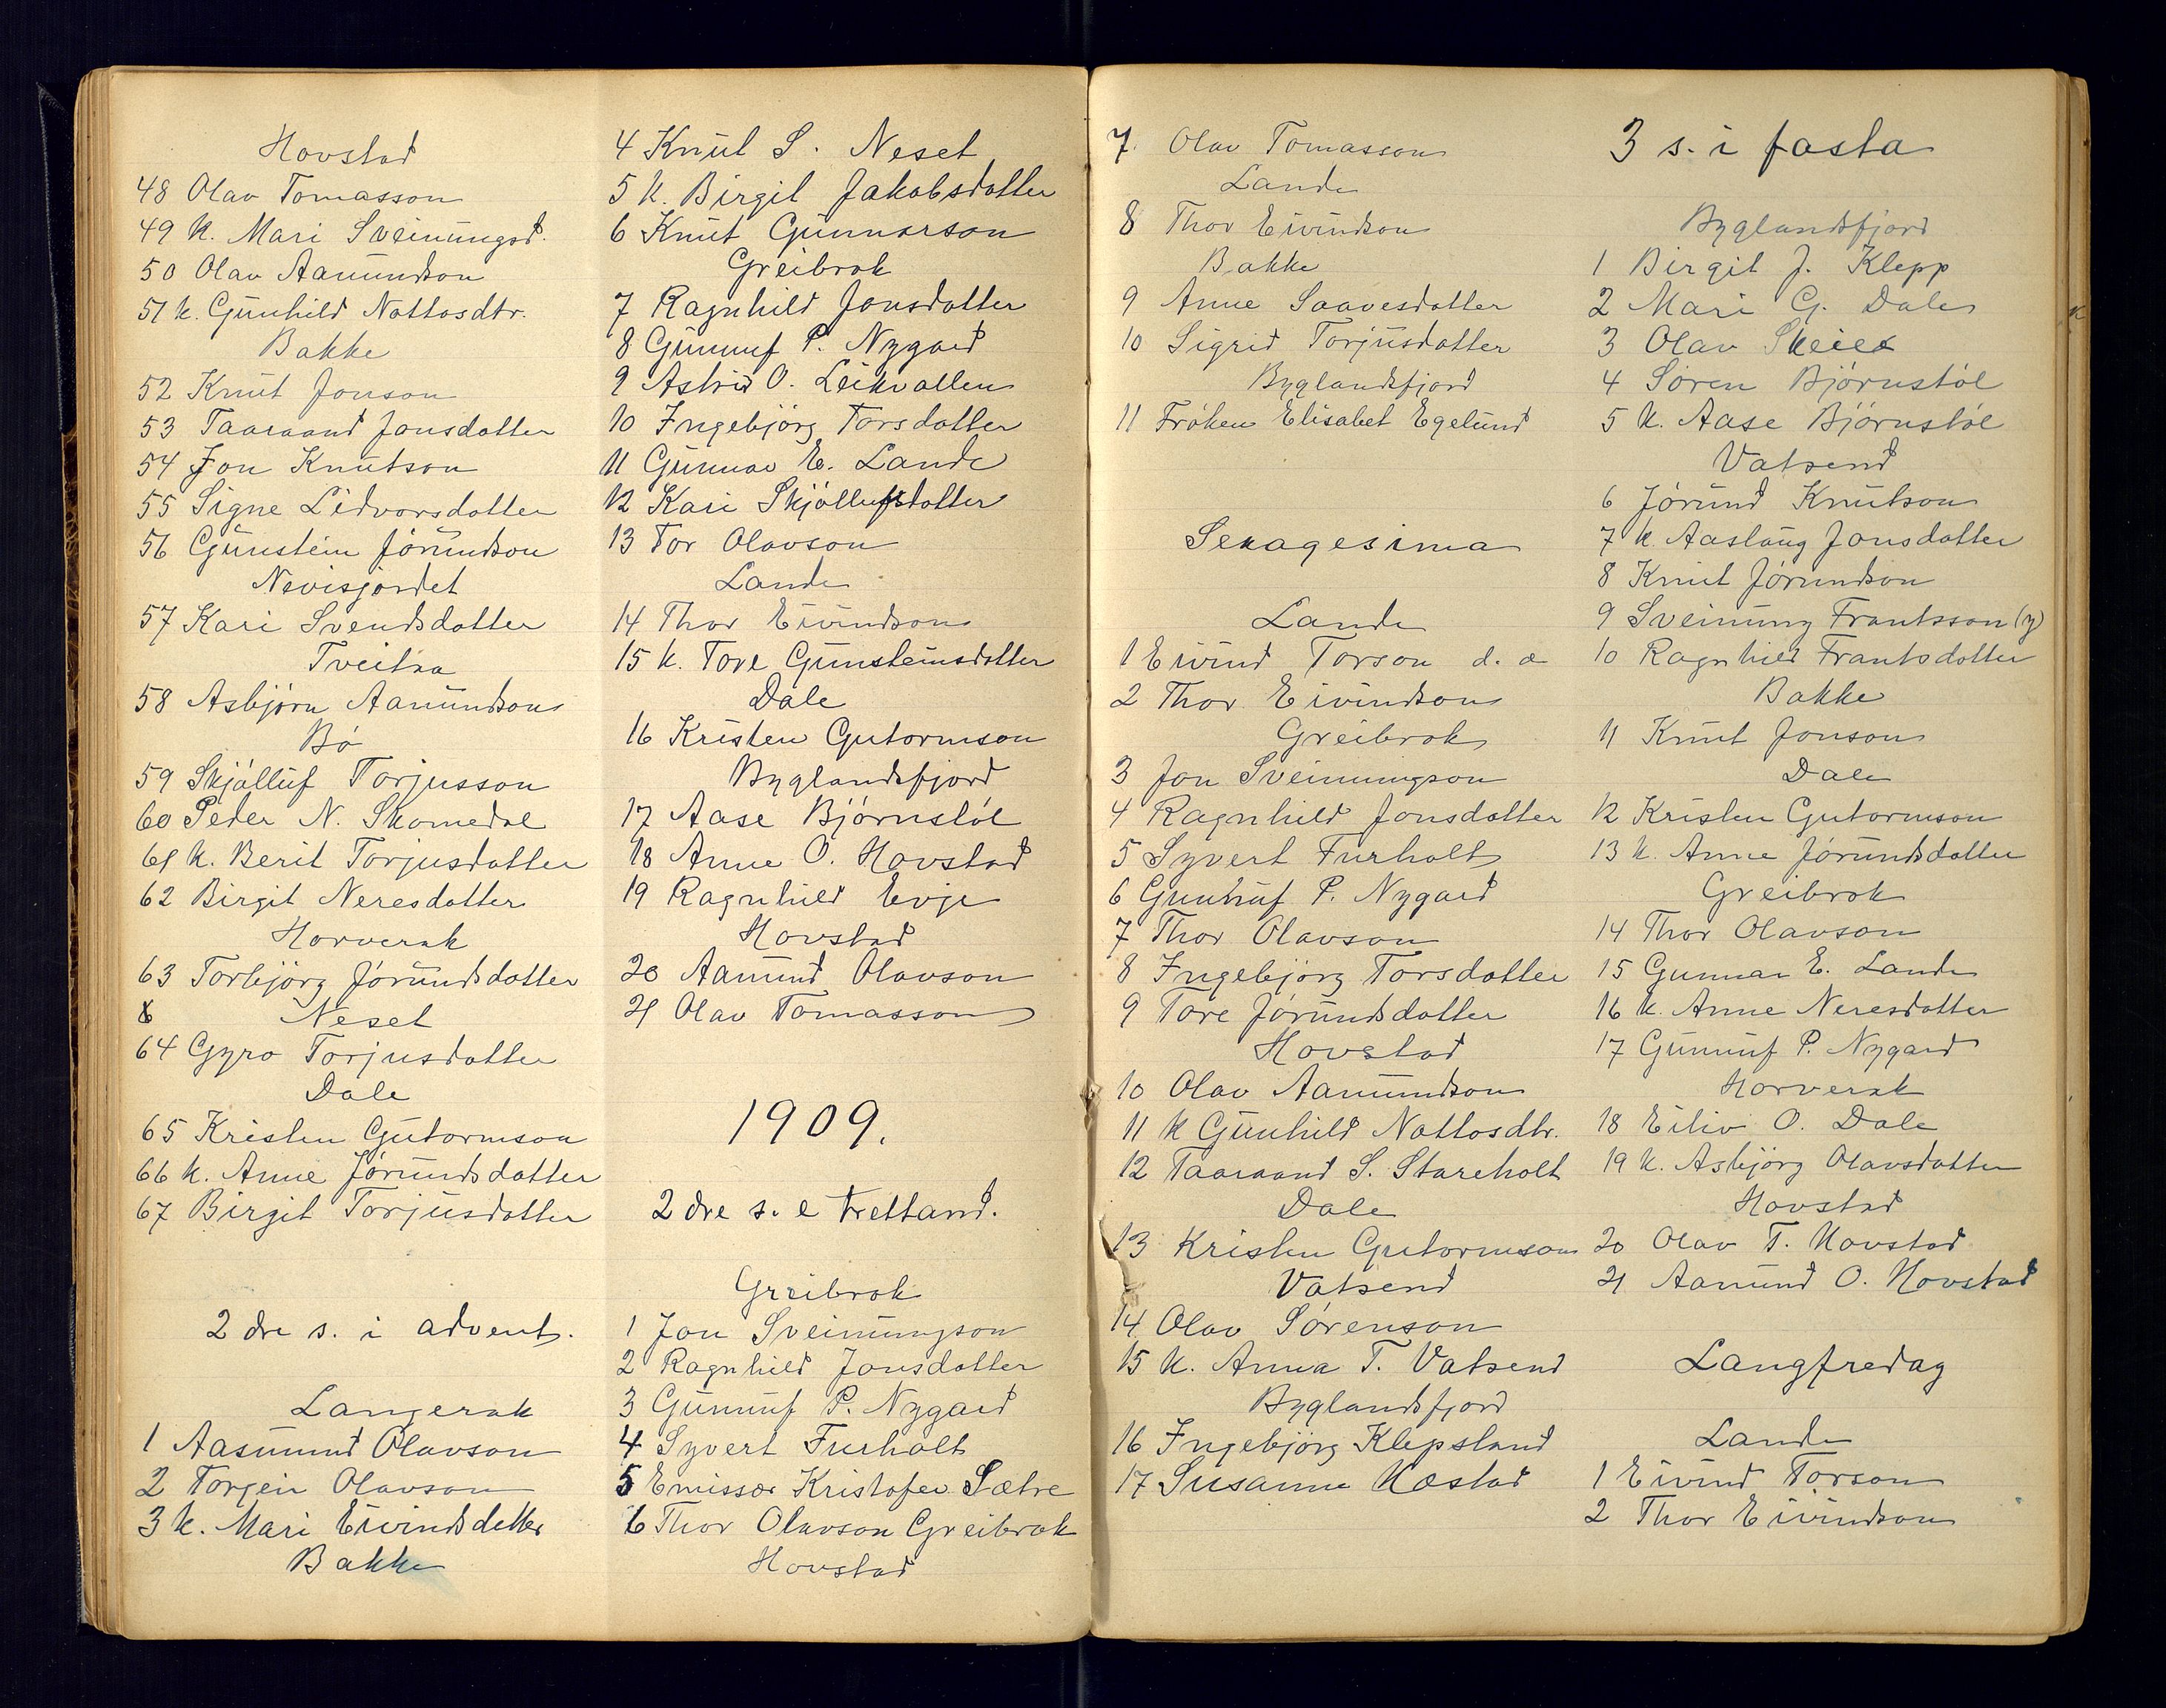 Hovstad
48 Olav Tomasson
49 k. Mari Sveinungsd.
50 Olav Aamundson
51 k. Gunhild Nottosdtr.
Bakke
52 Knut Jonson
53 Taaraand Jonsdotter
54 Jon Knutson
55 Signe Lidvorsdotter
56 Gunstein Jörundson
Nevisjordet
57 Kari Svendsdotter
Tveitaa
58 Asbjörn Aamundson
Bö
59 Skjölluf Torjusson
60 Peder N. Skomedal
61 k. Berit Torjusdotter
62 Birgit Neresdotter
Horverak
63 Torbjörg Jörundsdotter
Neset
64 Gyro Torjusdotter
Dale
65 Kristen Gutormson
66 k. Anne Jörundsdotter
67 Birgit Torjusdotter
2dre s. i advent.
Langerak
1 Aasmund Olavson
2 Torgein Olavson
3 k. Mari Eivindsdotter
Bakke
4 Knut S. Neset
5 k. Birgit Jakobsdotter
6 Knut Gunnarson
Greibrok
7 Ragnhild Jonsdotter
8 Gunnuf P. Nygard
9 Astrid O. Leikvollen
10 Ingebjörg Torsdotter
11 Gunnar E. Lande
12 Kari Skjöllufsdotter
13 Tor Olavson
Lande
14 Thor Eivindson
15 k. Tore Gunsteinsdotter
Dale
16 Kristen Gutormson
Byglandsfjord
17 Aase Björnstöl
18 Anne O. Hovstad
19 Ragnhild Evje
Hovstad
20 Aamund Olavson
21 Olav Tomasson
1909.
2dre s. e trettand.
Greibrok
1 Jon Sveinungson
2 Ragnhild Jonsdotter
3 Gunnuf P. Nygard
4 Syvert Furholt
5 Emissær Kristofer Sætre
6 Thor Olavson Greibrok
Hovstad
7. Olav Tomasson
Lande
8 Thor Eivindson
Bakke
9 Anne Saavesdotter
10 Sigrid Torjusdotter
Byglandsfjord
11 Fröken Elisabet Egelund
Sexagesima
Lande
1 Eivind Torson d. æ
2 Thor Eivindson
Greibrok
3 Jon Sveinungson
4 Ragnhild Jonsdotter
5 Syvert Furholt
6 Gunnuf P. Nygard
7 Thor Olavson
8 Ingebjörg Torsdotter
9 Tore Jörundsdotter
Hovstad
10 Olav Aamundson
11 k Gunhild Nottosdtr.
12 Taaraand S. Stareholt
Dale
13 Kristen Gutormson
Vatsend
14 Olav Sörenson
15 k. Anna T. Vatsend
Byglandsfjord
16 Ingebjörg Klepsland
17 Susanne Hæstad
3 s. i fasta
Byglandsfjord
1 Birgit J. Klepp
2 Mari G. Dale
3 Olav Skeie
4 Sören Björnstöl
5 k. Aase Björnstöl
Vatsend
6 Jörund Knutson
7 k. Aaslaug Jonsdotter
8 Knut Jörundson
9 Sveinung Frantsson (y)
10 Ragnhild Frantsdotter
Bakke
11 Knut Jonson
Dale
12 Kristen Gutormson
13 k. Anne Jörundsdotter
Greibrok
14 Thor Olavson
15 Gunnar E. Lande
16 k. Anne Neresdotter
17 Gunnuf P. Nygard
Horverak
18 Eiliv O. Dale
19 k. Asbjörg Olavsdotter
Hovstad
20 Olav T. Hovstad
21 Aamund O. Hovstad
Langfredag
Lande
1 Eivind Torson
2 Thor Eivindson